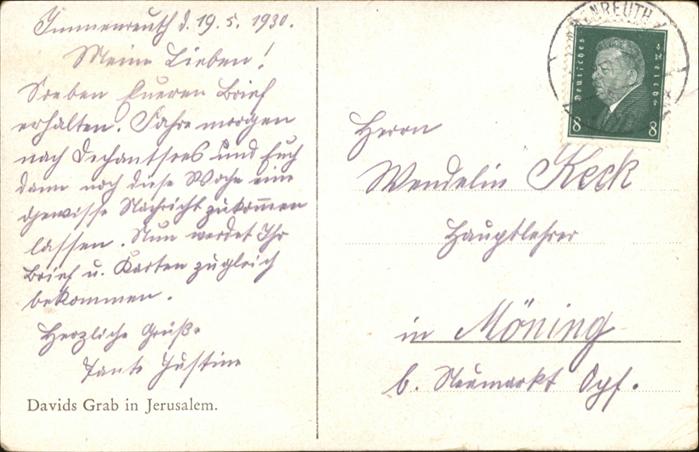 Immenreuth d. 19. 5. 1930.
Meine Lieben!
Soeben Eueren Brief
erhalten. Fahre morgen
nach Dechantsees und Euch
dann noch diese Woche eine
gewisse Nachricht zukommen
lassen. Nun werdet Ihr
Brief u. Karten zugleich
bekommen.
Herzliche Grüße
Tante Justine
Davids Grab in Jerusalem.
ENREUTH
Deutsches Reich
8 8
Herrn
Wendelin Keck
Hauptlehrer
in Möning
b. Neumarkt Opf.